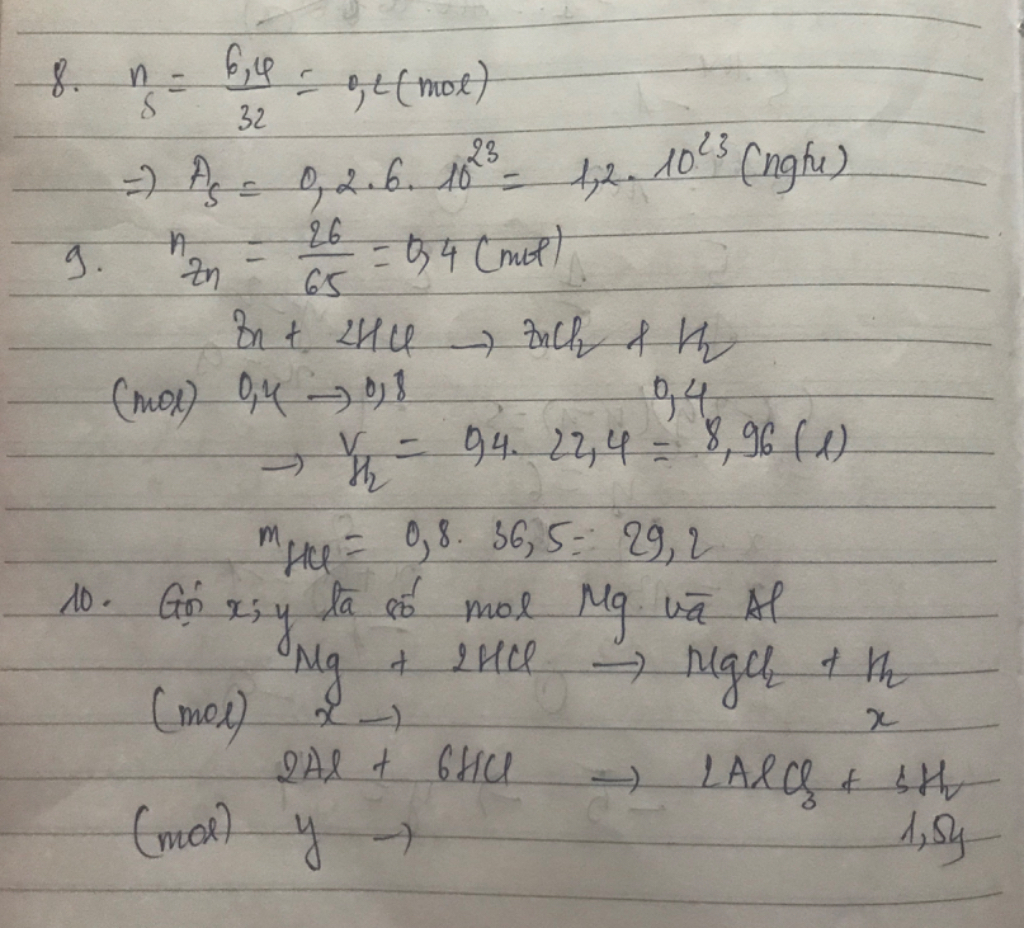 8. n_S = 6,4/32 = 0,2 (mol)
=) A_S = 0,2.6.10^23 = 1,2.10^23 (ngtu)
9. n_Zn = 26/65 = 0,4 (mol)
Zn + 2HCl → ZnCl2 + H2
(mol) 0,4 → 0,8 0,4
→ V_H2 = 0,4. 22,4 = 8,96 (l)
m_HCl = 0,8. 36,5 = 29,2
10. Gọi x; y là số mol Mg và Al
Mg + 2HCl → MgCl2 + H2
(mol) x → x
2Al + 6HCl → 2AlCl3 + 3H2
(mol) y → 1,5y